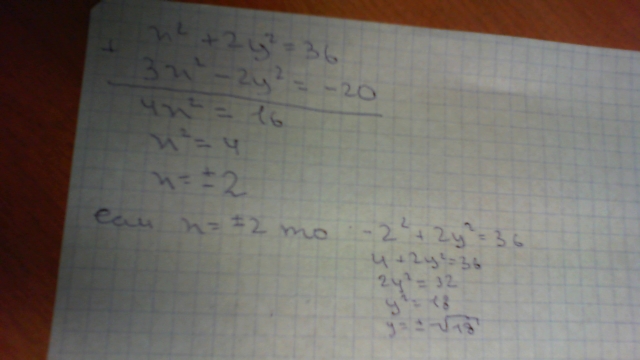 x² + 2y² = 36
+ 3x² - 2y² = -20
4x² = 16
x² = 4
x = ±2
если x = ±2 то -2² + 2y² = 36
4 + 2y² = 36
2y² = 32
y² = 18
y = ±√18